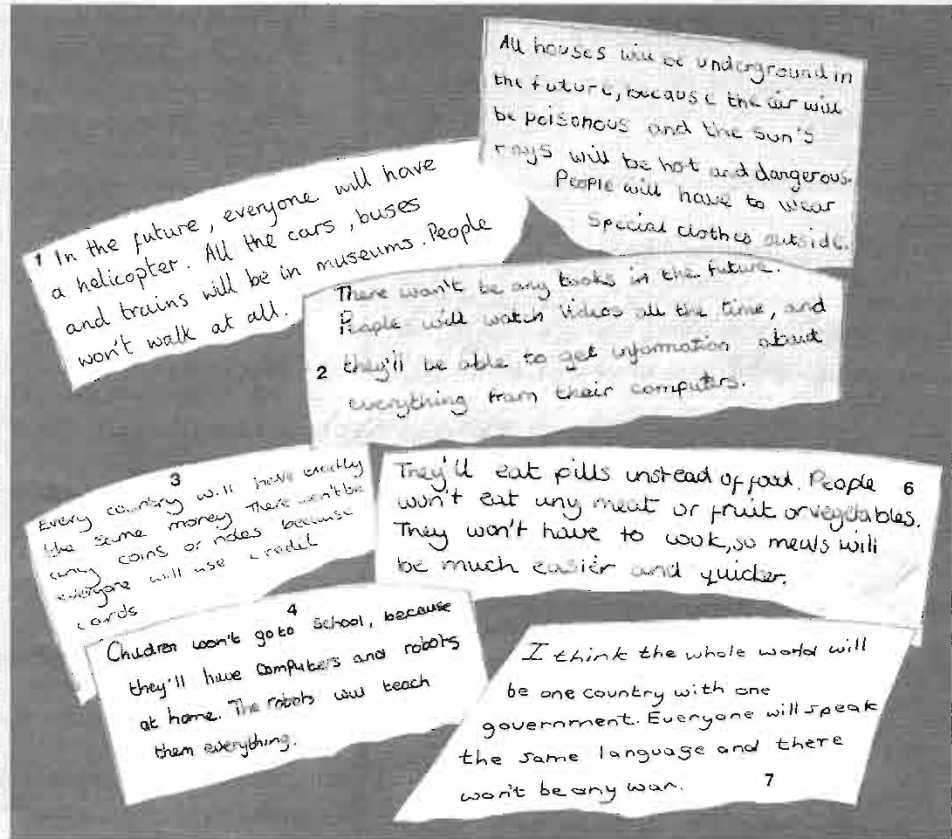 All houses will be underground in
the future, because the air will
be poisonous and the sun's
rays will be hot and dangerous.
People will have to wear
special clothes outside.
1 In the future, everyone will have
a helicopter. All the cars, buses
and trains will be in museums. People
won't walk at all.
There won't be any books in the future.
People will watch videos all the time, and
2 they'll be able to get information about
everything from their computers.
3
Every country will have exactly
the same money. There won't be
any coins or notes because
everyone will use credit
cards
They'll eat pills instead of food. People 6
won't eat any meat or fruit or vegetables.
They won't have to cook, so meals will
be much easier and quicker.
4
Children won't go to school, because
they'll have computers and robots
at home. The robots will teach
them everything.
I think the whole world will
be one country with one
government. Everyone will speak
the same language and there
won't be any war. 7